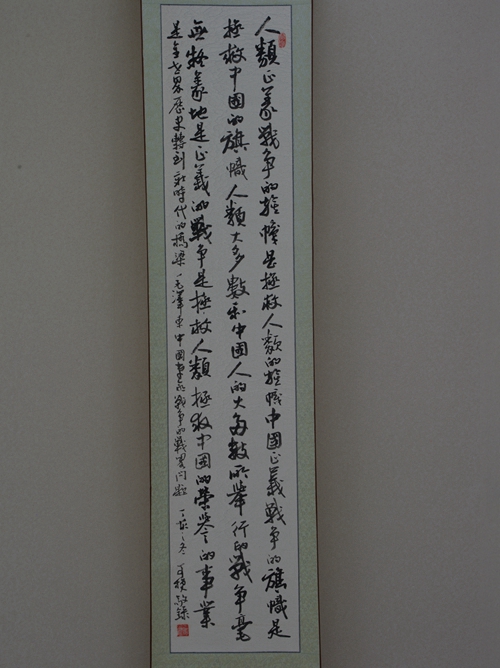 人類正義戰争的旗幟是拯救人類的旗幟中國正義戰争的旗幟是
拯救中國的旗幟人類大多數和中國人的大多數所舉行的戰争毫
無疑義地是正義的戰争是拯救人類拯救中國的荣誉的事業
是全世界歷史轉到新時代的橋梁毛澤東中國革命戰争的戰畧问題 冬 錄